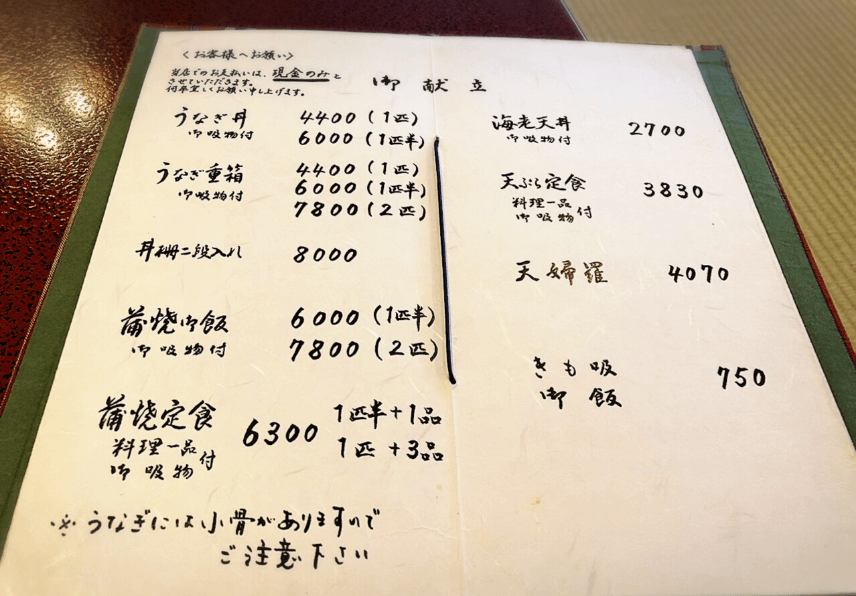 くお客様へお願い〉
当店でのお支払いは、現金のみと
させていただきます。
何卒宜しくお願い申し上げます。
御献立
うなぎ丼 4400(1匹)
御吸物付 6000(1匹半)
うなぎ重箱 4400(1匹)
6000(1匹半)
御吸物付 7800(2匹)
丼柵二段入れ 8000
蒲焼御飯 6000(1匹半)
御吸物付 7800(2匹)
蒲焼定食 6300 1匹半+1品
料理一品付 1匹+3品
御吸物
※うなぎには小骨がありますので
ご注意下さい
海老天丼 2700
御吸物付
天ぷら定食 3830
料理一品付
御吸物
天婦羅 4070
きも吸 750
御飯